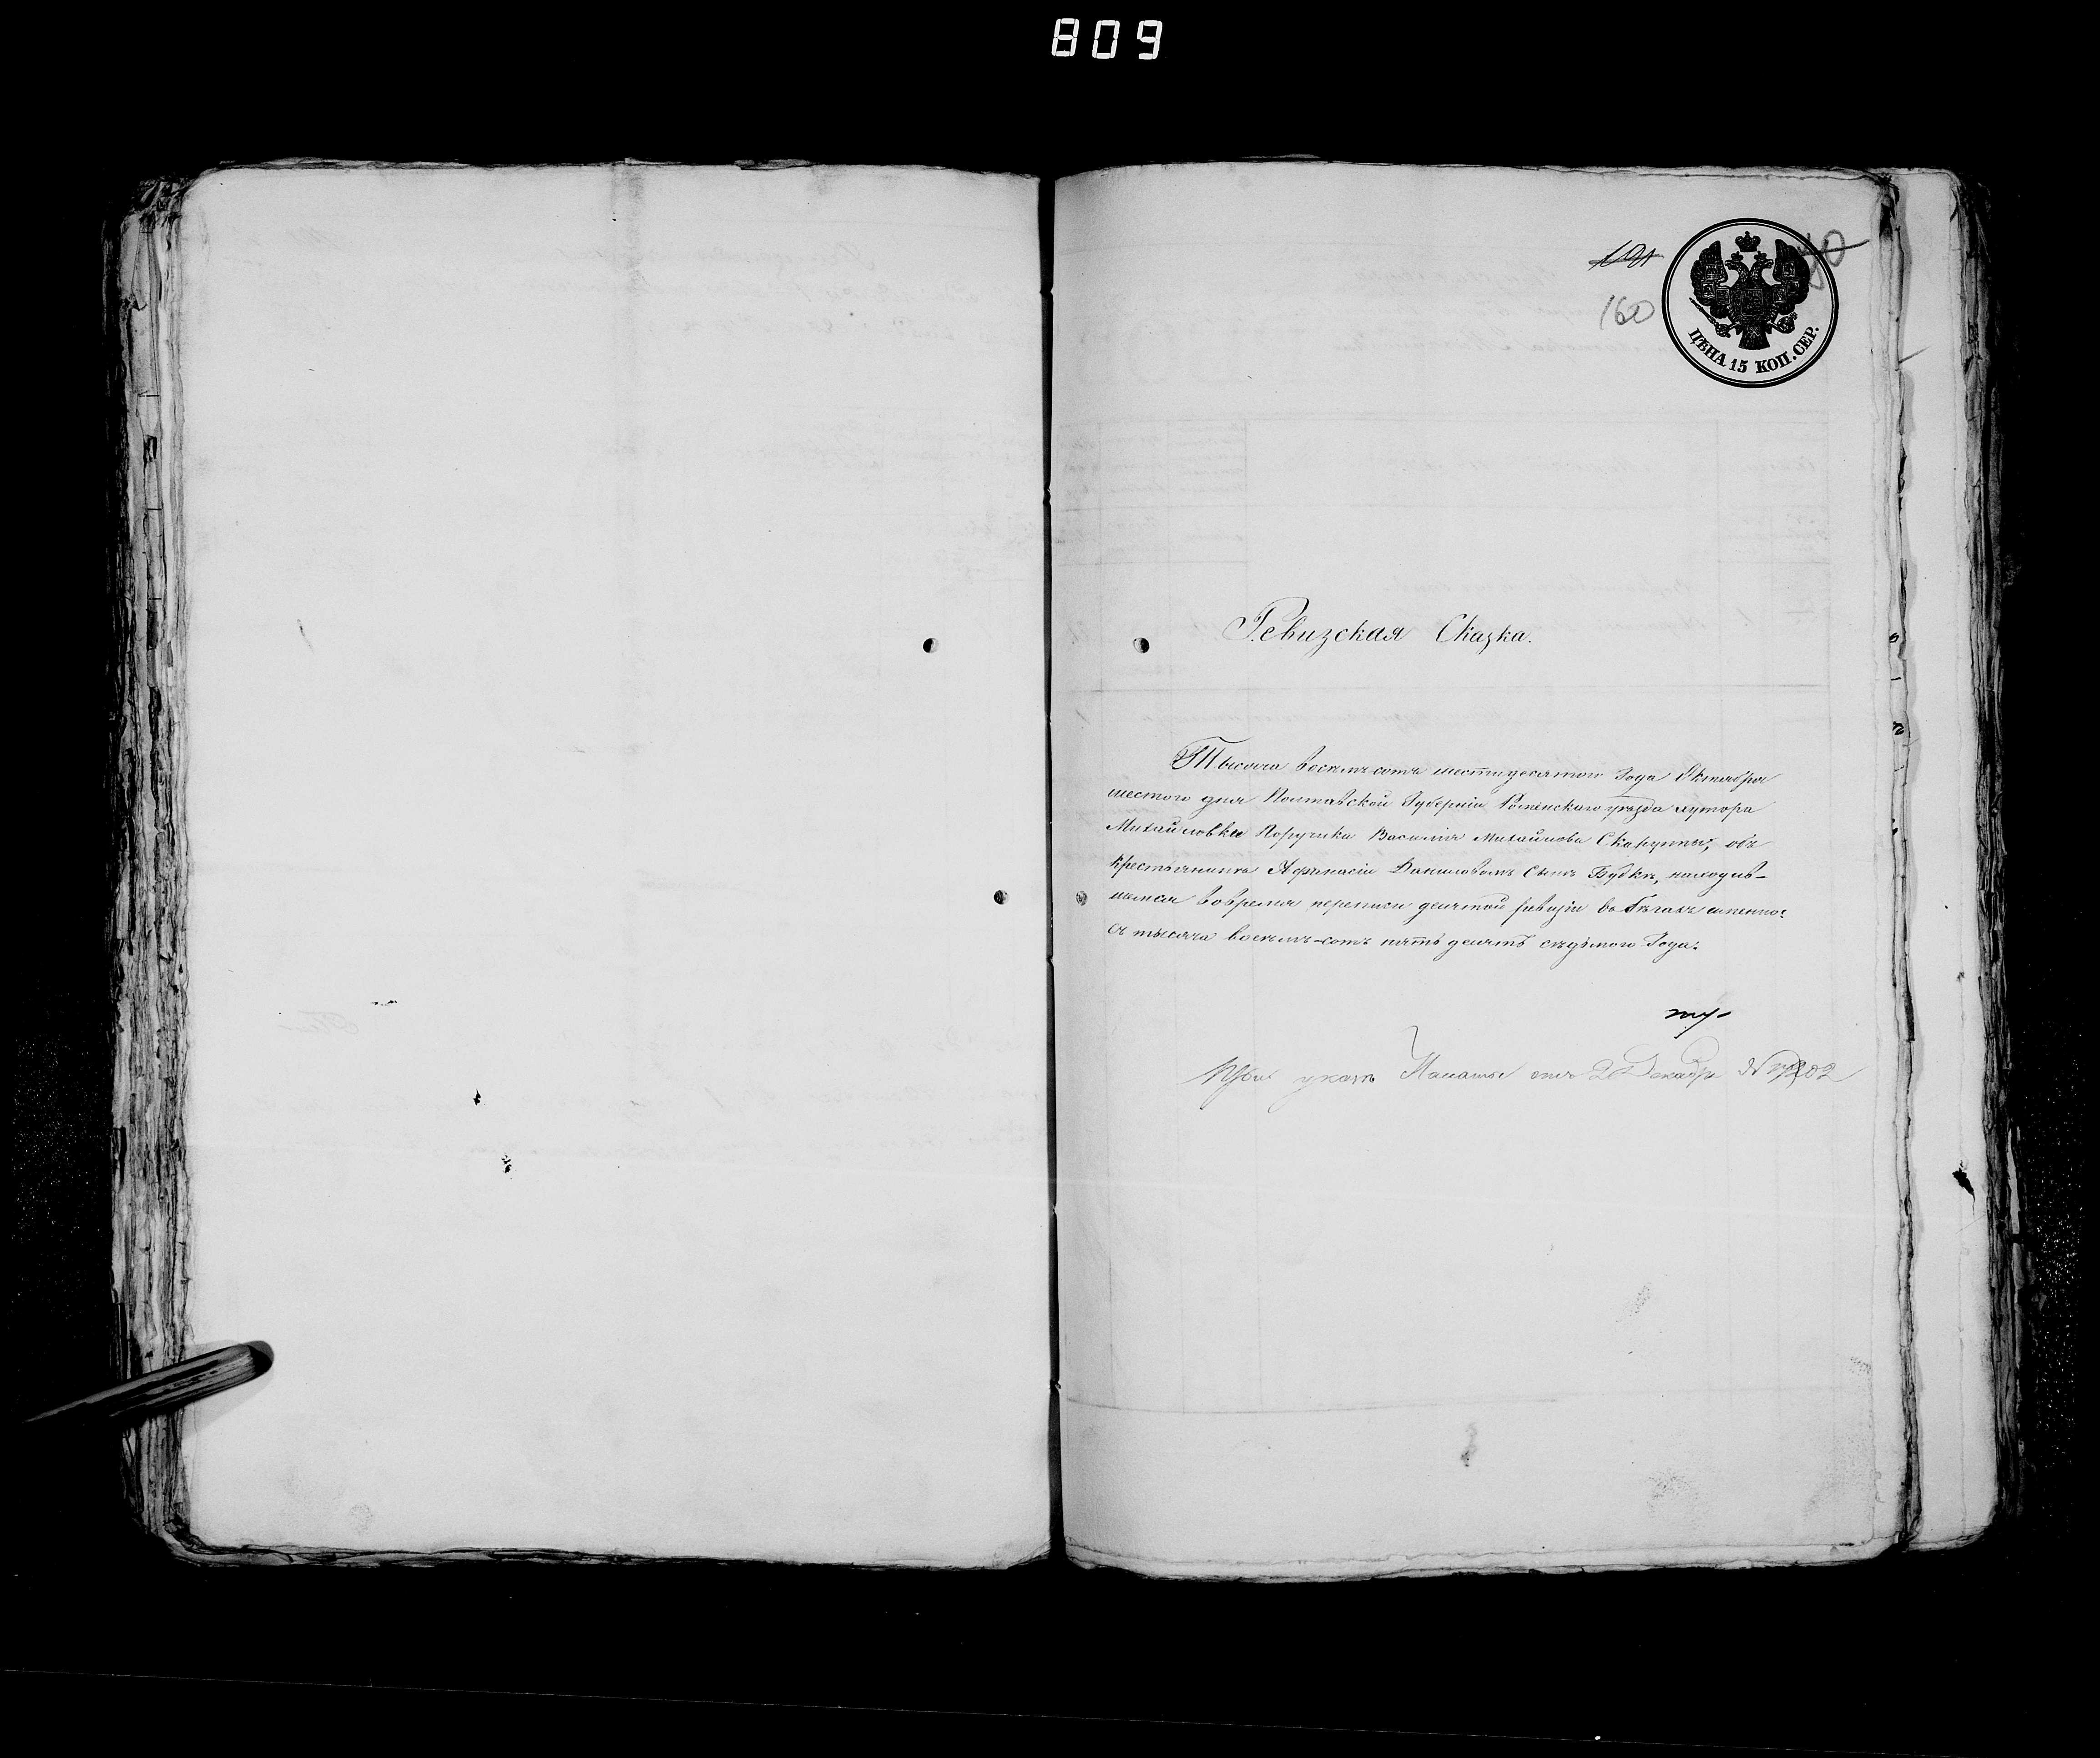 809
191
160
ЦѢНА 15 КОП. СЕР.
Ревизская Сказка.
Тысяча восемъ сотъ шестидесятого Года Октября
шестого дня Полтавской Губерніи Роменскаго уѣзда хутора
Михайловки Поручика Василія Михайлова Скорупы, объ
Крестьянинѣ Афанасіи Даниловомъ Сынѣ Будкѣ, находив-
шемся вовремя переписи десятой ревизіи въ бѣгахъ именно:
съ тысяча восемъ-сотъ пять десятъ седьмого Года.
При указѣ Палаты отъ 2 Декабр №